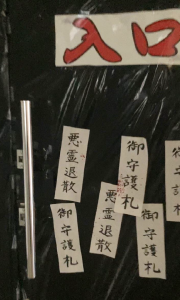 入口
御守護札
悪霊退散
御守護札
悪霊退散
御守護札